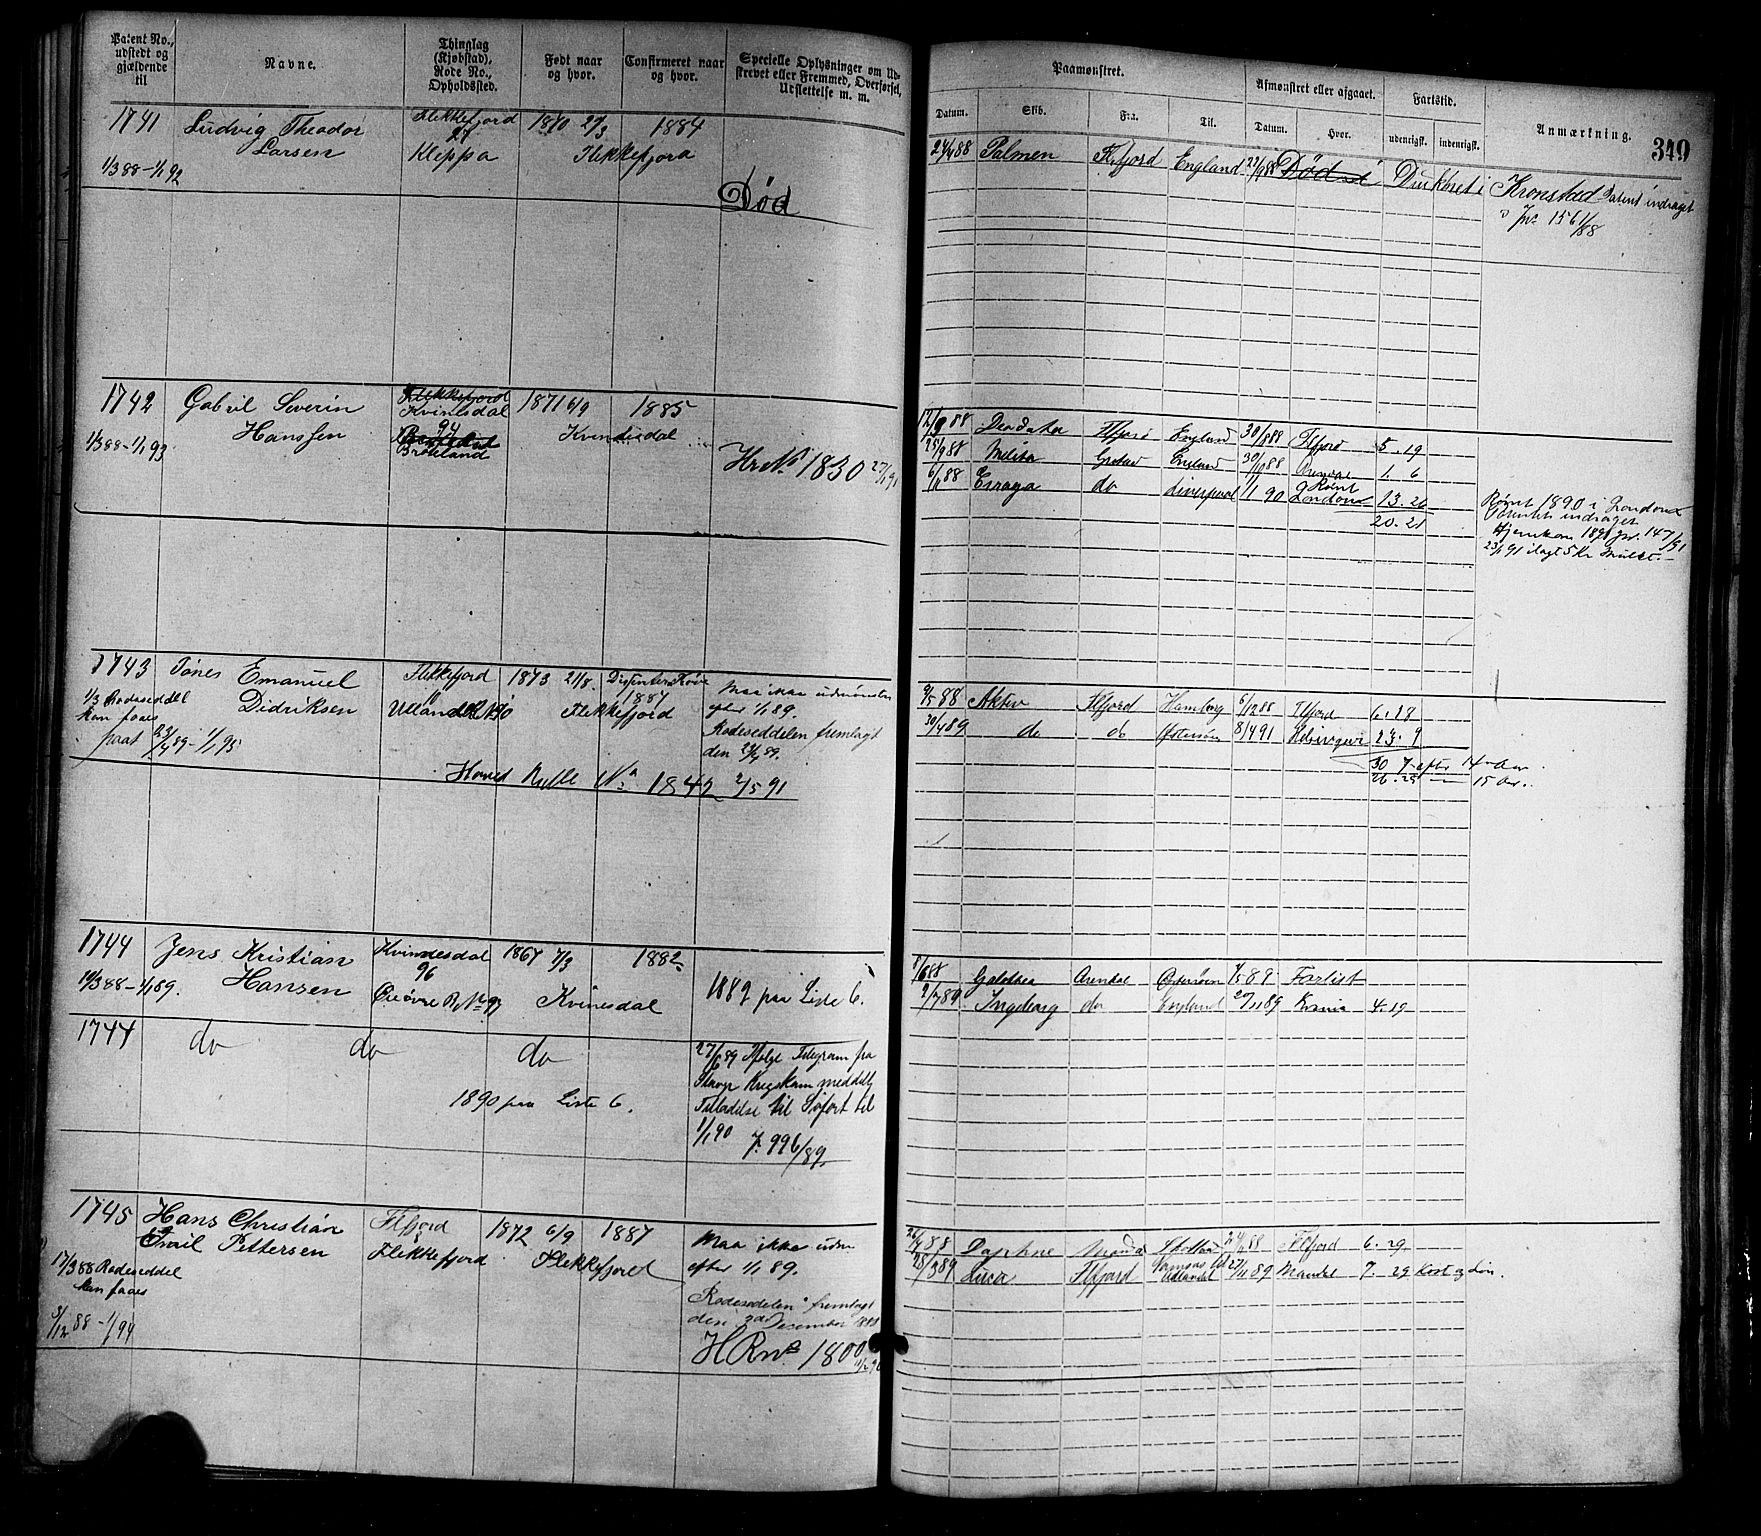 Patent No., udstedt og gjældende til
Navne.
Thinglag (Kjøbstad), Rode No., Opholdssted.
Født naar og hvor.
Confirmeret naar og hvor.
Specielle Oplysninger om Udskrevet eller Fremmed, Overførsel, Udslettelse m. m.
1741 Ludvig Theodor Flekkefjord 1870 27/3 1884
Larsen 27
1/3 88-1/1 92 Kleppa Flekkefjord
Død
1742 Gabriel Severin Flekkefjord 1871 6/9 1885
Kvinesdal
Hanssen 94 Kvindesdal
1/3 88-1/1 93
HrNo 1830 27/1 91
1743 Tønes Emanuel Flekkefjord 1873 21/8.
1/3 Rodeseddel Didriksen 1887 Maa ikke udmønstres
kan faaes Flekkefjord efter 1/1 89.
paat 23/4 89-1/1 95 Rodeseddelen fremlagt
den 23/4 89.
Hoved Rulle No 1842 2/5 91
1744 Jens Kristian Kvindesdal 1867 7/3 1882
Hansen 96
1889 paa Liste 6.
Kvinesdal
1744 do do do
27/6 89 Ifølge Telegram fra
Krigskom meddelt
1890 paa Liste 6. Tilladelse til Søfart til
1/1 90
J. 996/89.
1745 Hans Christian Flfjord 1872 6/9 1887
Emil Pettersen Flekkefjord Flekkefjord Maa ikke udm
efter 1/1 89.
17/3 88 Rodeseddel
kan faaes
Rodesedelen fremlagt
den 3die December 1888
3/12 88-1/1 94
HRNo 1800
Paamønstret.
Afmønstret eller afgaaet.
Fartstid.
Anmærkning.
349
Datum. Skib. Fra. Til. Datum. Hvor. udenrigsk. indenrigsk.
24/4 88 Palmen Flfjord England 22/9 88 Død Druknet i Kronstad Patent indraget
Jr. 1561/88
12/3 88 Deodata Flfjord England 30/8 88 Flfjord 5. 19
25/9 88 Grstad England 30/10 88 1. 6
6/11 88 do Liverpool 1/1 90 Rømt London 13. 26
20. 21
Rømt 1890 i London
Patentet indraget
Hjemkom 1891 jr. 147/91
23/1 91 ilagt 5 Kr Mulct.
9/5 88 Aktiv Flfjord Hamborg 6/12 88 Flfjord 6. 28
30/4 89 do do Østersøen 8/4 91 Helsingør 23. 9
30 7 - efter 14 Aar
26. 25 - 15 Aar.
Galathea Arendal Østersøen Forlist
2/7 89 Ingeborg do England 27/11 89 4. 19
26/4 88 Daphne Mandal Flfjord 6. 29
28/3 89 Luca Flfjord Udlandet 27/11 89 Mandal 7. 29 Kost og Løn.